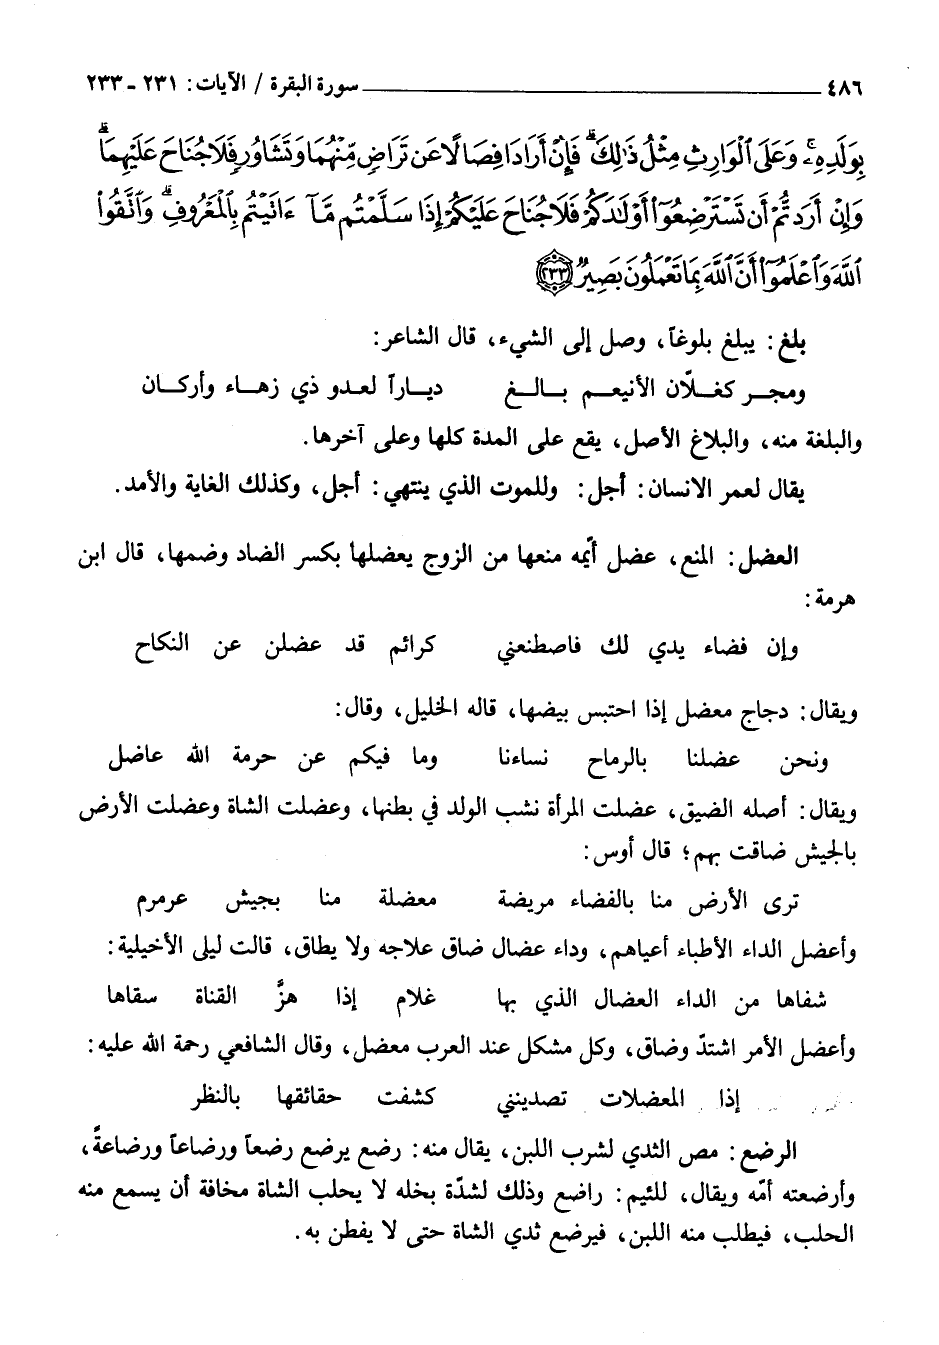 ٤٨٦ سورة البقرة / الآيات: ٢٣١ - ٢٣٣
بِوَلَدِهِۦۚ وَعَلَى ٱلْوَارِثِ مِثْلُ ذَٰلِكَۗ فَإِنْ أَرَادَا فِصَالًا عَن تَرَاضٍ مِّنْهُمَا وَتَشَاوُرٍ فَلَا جُنَاحَ عَلَيْهِمَاۗ
وَإِنْ أَرَدتُّمْ أَن تَسْتَرْضِعُوٓا۟ أَوْلَٰدَكُمْ فَلَا جُنَاحَ عَلَيْكُمْ إِذَا سَلَّمْتُم مَّآ ءَاتَيْتُم بِٱلْمَعْرُوفِۗ وَٱتَّقُوا۟
ٱللَّهَ وَٱعْلَمُوٓا۟ أَنَّ ٱللَّهَ بِمَا تَعْمَلُونَ بَصِيرٌ ﴿٢٣٣﴾
بلغ: يبلغ بلوغاً، وصل إلى الشيء، قال الشاعر:
ومجـر كغـلّان الأنيعـم بـالـغ ديـاراً لعـدو ذي زهـاء وأركـان
والبلغة منه، والبلاغ الأصل، يقع على المدة كلها وعلى آخرها.
يقال لعمر الانسان: أجل: وللموت الذي ينتهي: أجل، وكذلك الغاية والأمد.
العضل: المنع، عضل أيّمه منعها من الزوج يعضلها بكسر الضاد وضمها، قال ابن
هرمة:
وإن قضاء يدي لك فاصطنعني كرائم قد عضلن عن النكاح
ويقال: دجاج معضل إذا احتبس بيضها، قاله الخليل، وقال:
ونحن عضلنا بالرماح نساءنا وما فيكم عن حرمة الله عاضل
ويقال: أصله الضيق، عضلت المرأة نشب الولد في بطنها، وعضلت الشاة وعضلت الأرض
بالجيش ضاقت بهم؛ قال أوس:
ترى الأرض منا بالفضاء مريضة معضلة منا بجيش عرمرم
وأعضل الداء الأطباء أعياهم، وداء عضال ضاق علاجه ولا يطاق، قالت ليلى الأخيلية:
شفاها من الداء العضال الذي بها غلام إذا هزَّ القناة سقاها
وأعضل الأمر اشتدّ وضاق، وكل مشكل عند العرب معضل، وقال الشافعي رحمة الله عليه:
إذا المعضلات تصدينني كشفت حقائقها بالنظر
الرضع: مص الثدي لشرب اللبن، يقال منه: رضع يرضع رضعاً ورضاعاً ورضاعةً،
وأرضعته أمّه ويقال، للئيم: راضع وذلك لشدّة بخله لا يحلب الشاة مخافة أن يسمع منه
الحلب، فيطلب منه اللبن، فيرضع ثدي الشاة حتى لا يفطن به.